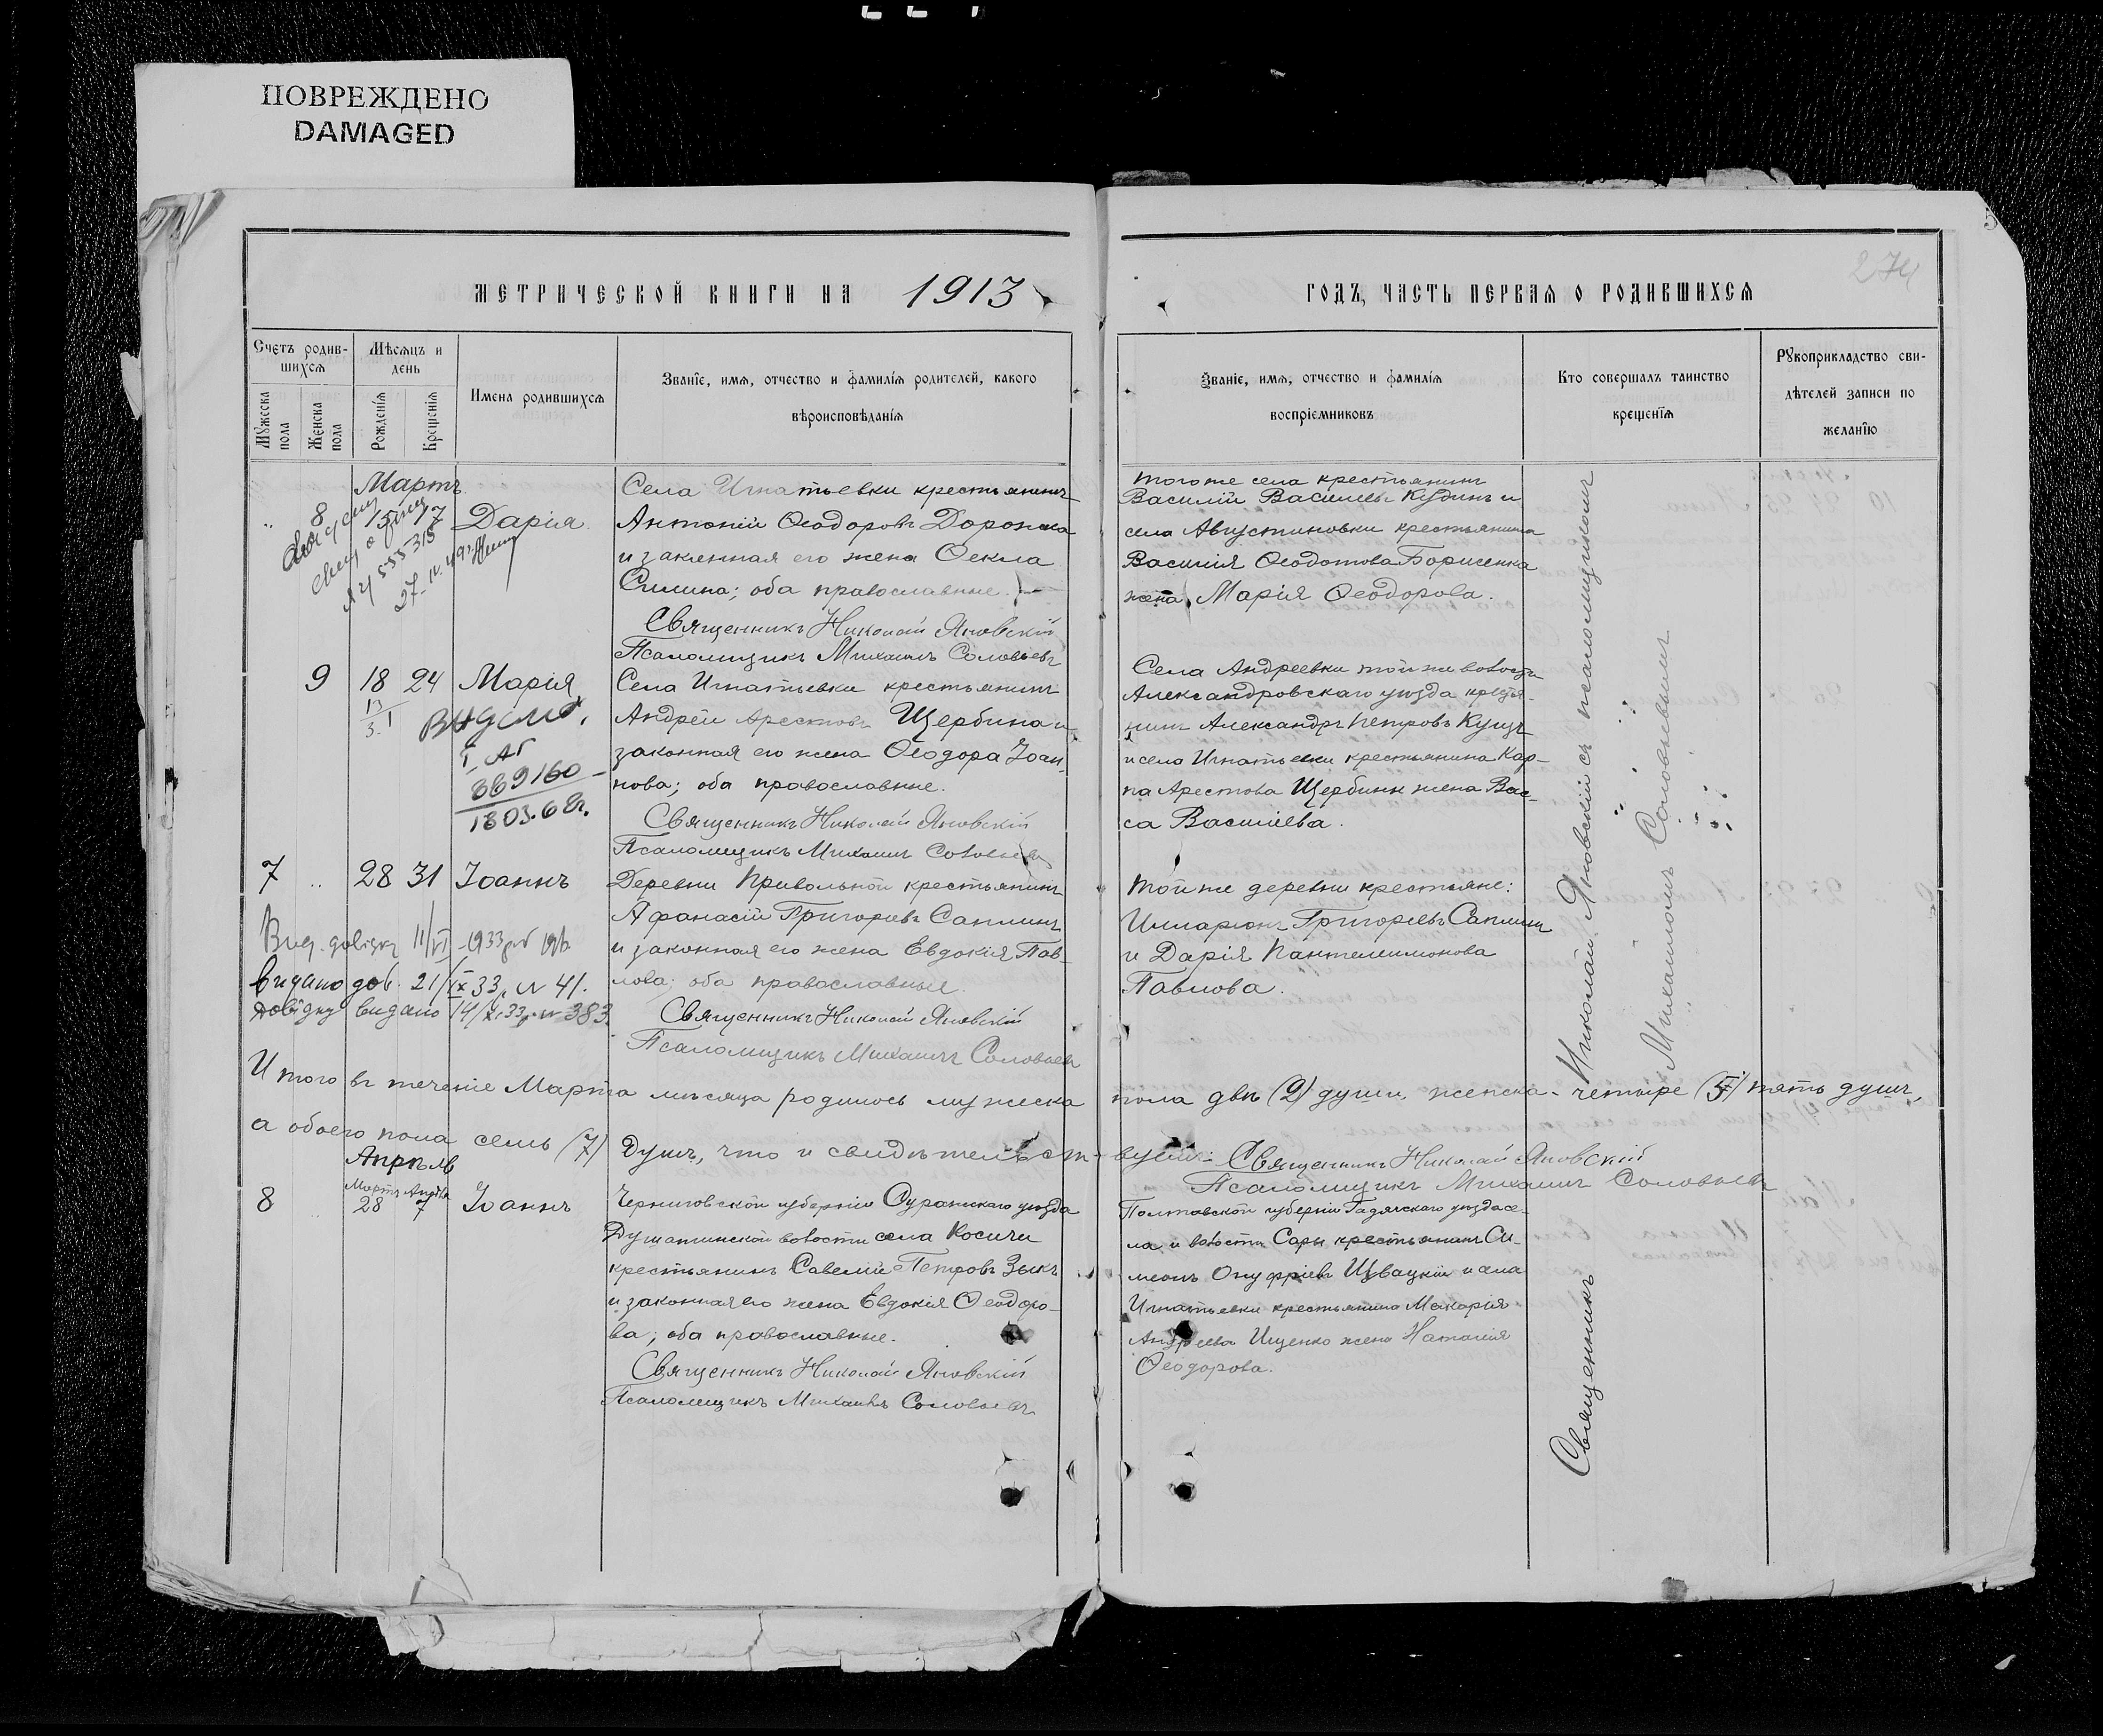 ПОВРЕЖДЕНО
DAMAGED
МЕТРИЧЕСКОЙ КНИГИ НА 1913
Счетъ родив-
шихся
Мѣсяцъ и
день
Имена родившихся
Званїе, имя, отчество и фамилїя родителей, какого
вѣроисповѣданїя
Мужеска
пола
Женска
пола
Рожденїя
Крещенїя
Мартъ
8 15 17 Дарія
27. IV
Села Игнатьевки крестьянинъ
Антоній Ѳеодоровъ Доронка
и законная его жена Ѳекла
Силина; оба православные.
Священникъ Николай Яновскій
Псаломщикъ Михаилъ Соловьевъ
9 18 24 Марія
I АГ
869160
1803.68г.
Села Игнатьевки крестьянинъ
Андрей Арестовъ Щербина и
законная его жена Ѳеодора Іоан-
нова; оба православные.
Священникъ Николай Яновскій
Псаломщикъ Михаилъ Соловьевъ
7 28 31 Іоаннъ
Вид. довідку 11/VI 1933
видано дов. 21/IX 33 № 41.
довідку видано 14/X 33 № 383
Деревни Привольной крестьянинъ
Афанасій Григорьевъ Саплинъ
и законная его жена Евдокія Пав-
лова; оба православные.
Священникъ Николай Яновскій
Псаломщикъ Михаилъ Соловьевъ
Итого въ теченіе Марта мѣсяца родилось мужеска
а обоего пола семь (7) душъ, что и свидѣтельст-
Апрѣль
Мартъ Апрѣль
8 28 7 Іоаннъ
Черниговской губерніи Суражскаго уѣзда
Душатинской волости села Косичи
крестьянинъ Савелій Петровъ Зыкъ
и законная его жена Евдокія Ѳеодоро-
ва; оба православные.
Священникъ Николай Яновскій
Псаломщикъ Михаилъ Соловьевъ
274
ГОДЪ, ЧАСТЬ ПЕРВАЯ О РОДИВШИХСЯ
Званїе, имя, отчество и фамилїя
воспрїемниковъ
Кто совершалъ таинство
крещенїя
Рукоприкладство сви-
дѣтелей записи по
желанїю
Того же села крестьянинъ
Василій Васильевъ Кудинъ и
села Августиновки крестьянина
Василія Ѳеодотова Борисенка
жена Марія Ѳеодорова.
Села Андреевки той же волости
Александровскаго уѣзда крестья-
нинъ Александръ Петровъ Куцъ
и села Игнатьевки крестьянина Кар-
па Арестова Щербины жена Вас-
са Васильева.
Той же деревни крестьяне:
Илларіонъ Григорьевъ Саплинъ
и Дарія Пантелеимонова
Павлова.
пола двѣ (2) души, женска - четыре (5) пять душъ,
вуемъ: Священникъ Николай Яновскій
Псаломщикъ Михаилъ Соловьевъ
Полтавской губерніи Гадячскаго уѣзда се-
ла и волости Сары крестьянинъ Си-
меонъ Онуфріевъ Швацкій и села
Игнатьевки крестьянина Макарія
Андреева Ищенко жена Наталія
Ѳеодорова.
Священникъ Николай Яновскій съ псаломщикомъ
Михаиломъ Соловьевымъ